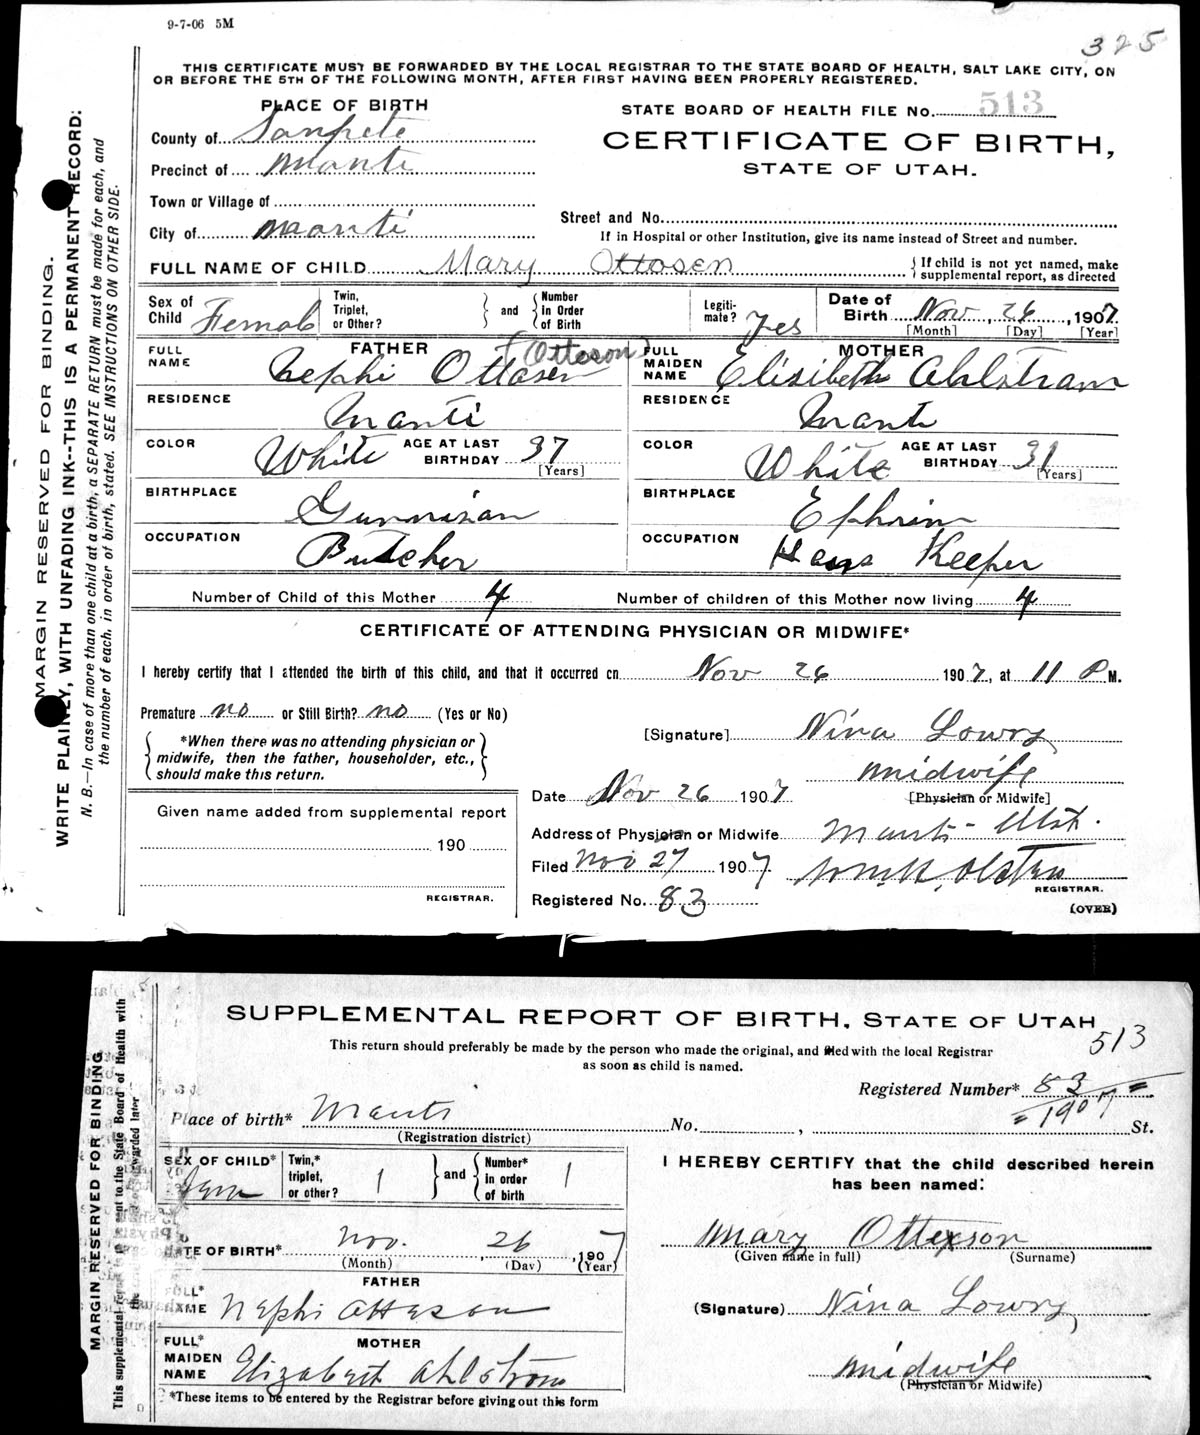 9-7-06 5M
325
THIS CERTIFICATE MUST BE FORWARDED BY THE LOCAL REGISTRAR TO THE STATE BOARD OF HEALTH, SALT LAKE CITY, ON
OR BEFORE THE 5TH OF THE FOLLOWING MONTH, AFTER FIRST HAVING BEEN PROPERLY REGISTERED.
PLACE OF BIRTH
STATE BOARD OF HEALTH FILE No. 513
County of Sanpete
CERTIFICATE OF BIRTH,
Precinct of Manti
STATE OF UTAH.
Town or Village of
Street and No.
City of Manti
If in Hospital or other Institution, give its name instead of Street and number.
FULL NAME OF CHILD Mary Ottosen
{If child is not yet named, make
supplemental report, as directed
Sex of Child Female
Twin, Triplet, or Other? } and { Number in Order of Birth
Legitimate? Yes
Date of Birth Nov, 26, 1907.
[Month] [Day] [Year]
FATHER
FULL NAME Nephi Ottosen (Otteson)
MOTHER
FULL MAIDEN NAME Elisibeth Ahlstram
RESIDENCE Manti
RESIDENCE Manti
COLOR White AGE AT LAST BIRTHDAY 37 [Years]
COLOR White AGE AT LAST BIRTHDAY 31 [Years]
BIRTHPLACE Gunnisan
BIRTHPLACE Ephrim
OCCUPATION Butcher
OCCUPATION Haus Keeper
Number of Child of this Mother 4
Number of children of this Mother now living 4
CERTIFICATE OF ATTENDING PHYSICIAN OR MIDWIFE*
I hereby certify that I attended the birth of this child, and that it occurred on Nov 26 1907, at 11 P M.
Premature no or Still Birth? no (Yes or No)
{ *When there was no attending physician or
midwife, then the father, householder, etc.,
should make this return. }
[Signature] Nina Lowry
midwife
[Physician or Midwife]
Date Nov 26 1907
Given name added from supplemental report
190
REGISTRAR.
Address of Physician or Midwife Manti - Utah.
Filed Nov 27 1907
REGISTRAR.
Registered No. 83
(OVER)
MARGIN RESERVED FOR BINDING.
WRITE PLAINLY, WITH UNFADING INK--THIS IS A PERMANENT RECORD:
N. B.—In case of more than one child at a birth, a SEPARATE RETURN must be made for each, and
the number of each, in order of birth, stated. SEE INSTRUCTIONS ON OTHER SIDE.
SUPPLEMENTAL REPORT OF BIRTH, STATE OF UTAH
513
This return should preferably be made by the person who made the original, and filed with the local Registrar
as soon as child is named.
Registered Number* 83
1907
Place of birth* Manti No. , St.
(Registration district)
SEX OF CHILD* Fem
Twin,* triplet, or other? 1 } and { Number* in order of birth 1
I HEREBY CERTIFY that the child described herein
has been named:
DATE OF BIRTH* Nov. , 26 , 1907
(Month) (Day) (Year)
Mary Otteson
(Given name in full) (Surname)
FATHER
FULL* NAME Nephi Otteson
(Signature) Nina Lowry
MOTHER
FULL* MAIDEN NAME Elizabeth Ahlstrom
midwife
(Physician or Midwife)
*These items to be entered by the Registrar before giving out this form
MARGIN RESERVED FOR BINDING